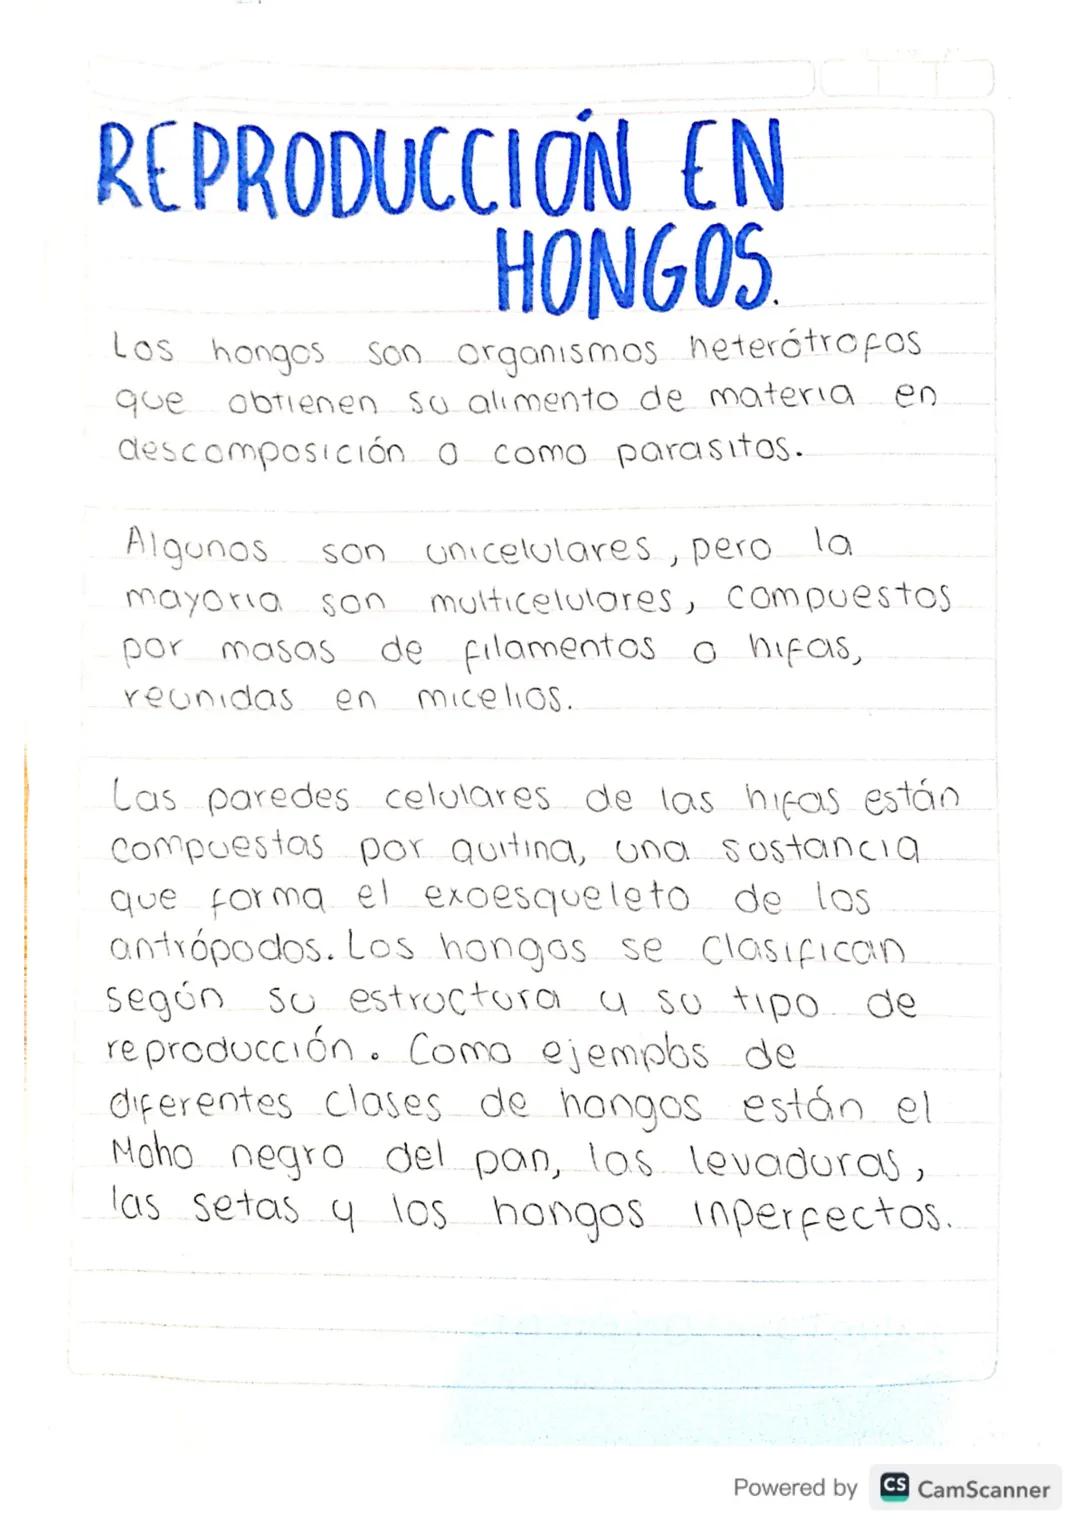 REPRODUCCIÓN EN
HONGOS.
Los hongos son organismos heterótrofos
que obtienen su alimento de materia en
descomposición o como parasitos.
Algunos son unicelulares, pero la
mayoria son multicelulares, compuestos
por masas de filamentos o hifas,
reunidas en micelios.
Las paredes celulares de las hifas están
compuestas por quitina, una sustancia
que forma el exoesqueleto de los
antrópodos. Los hongos se clasifican
según su estructura y su tipo de
reproducción. Como ejemplos de
diferentes clases de hongos están el
Moho negro del pan, las levaduras,
las setas y los hongos inperfectos.
Powered by CS CamScanner